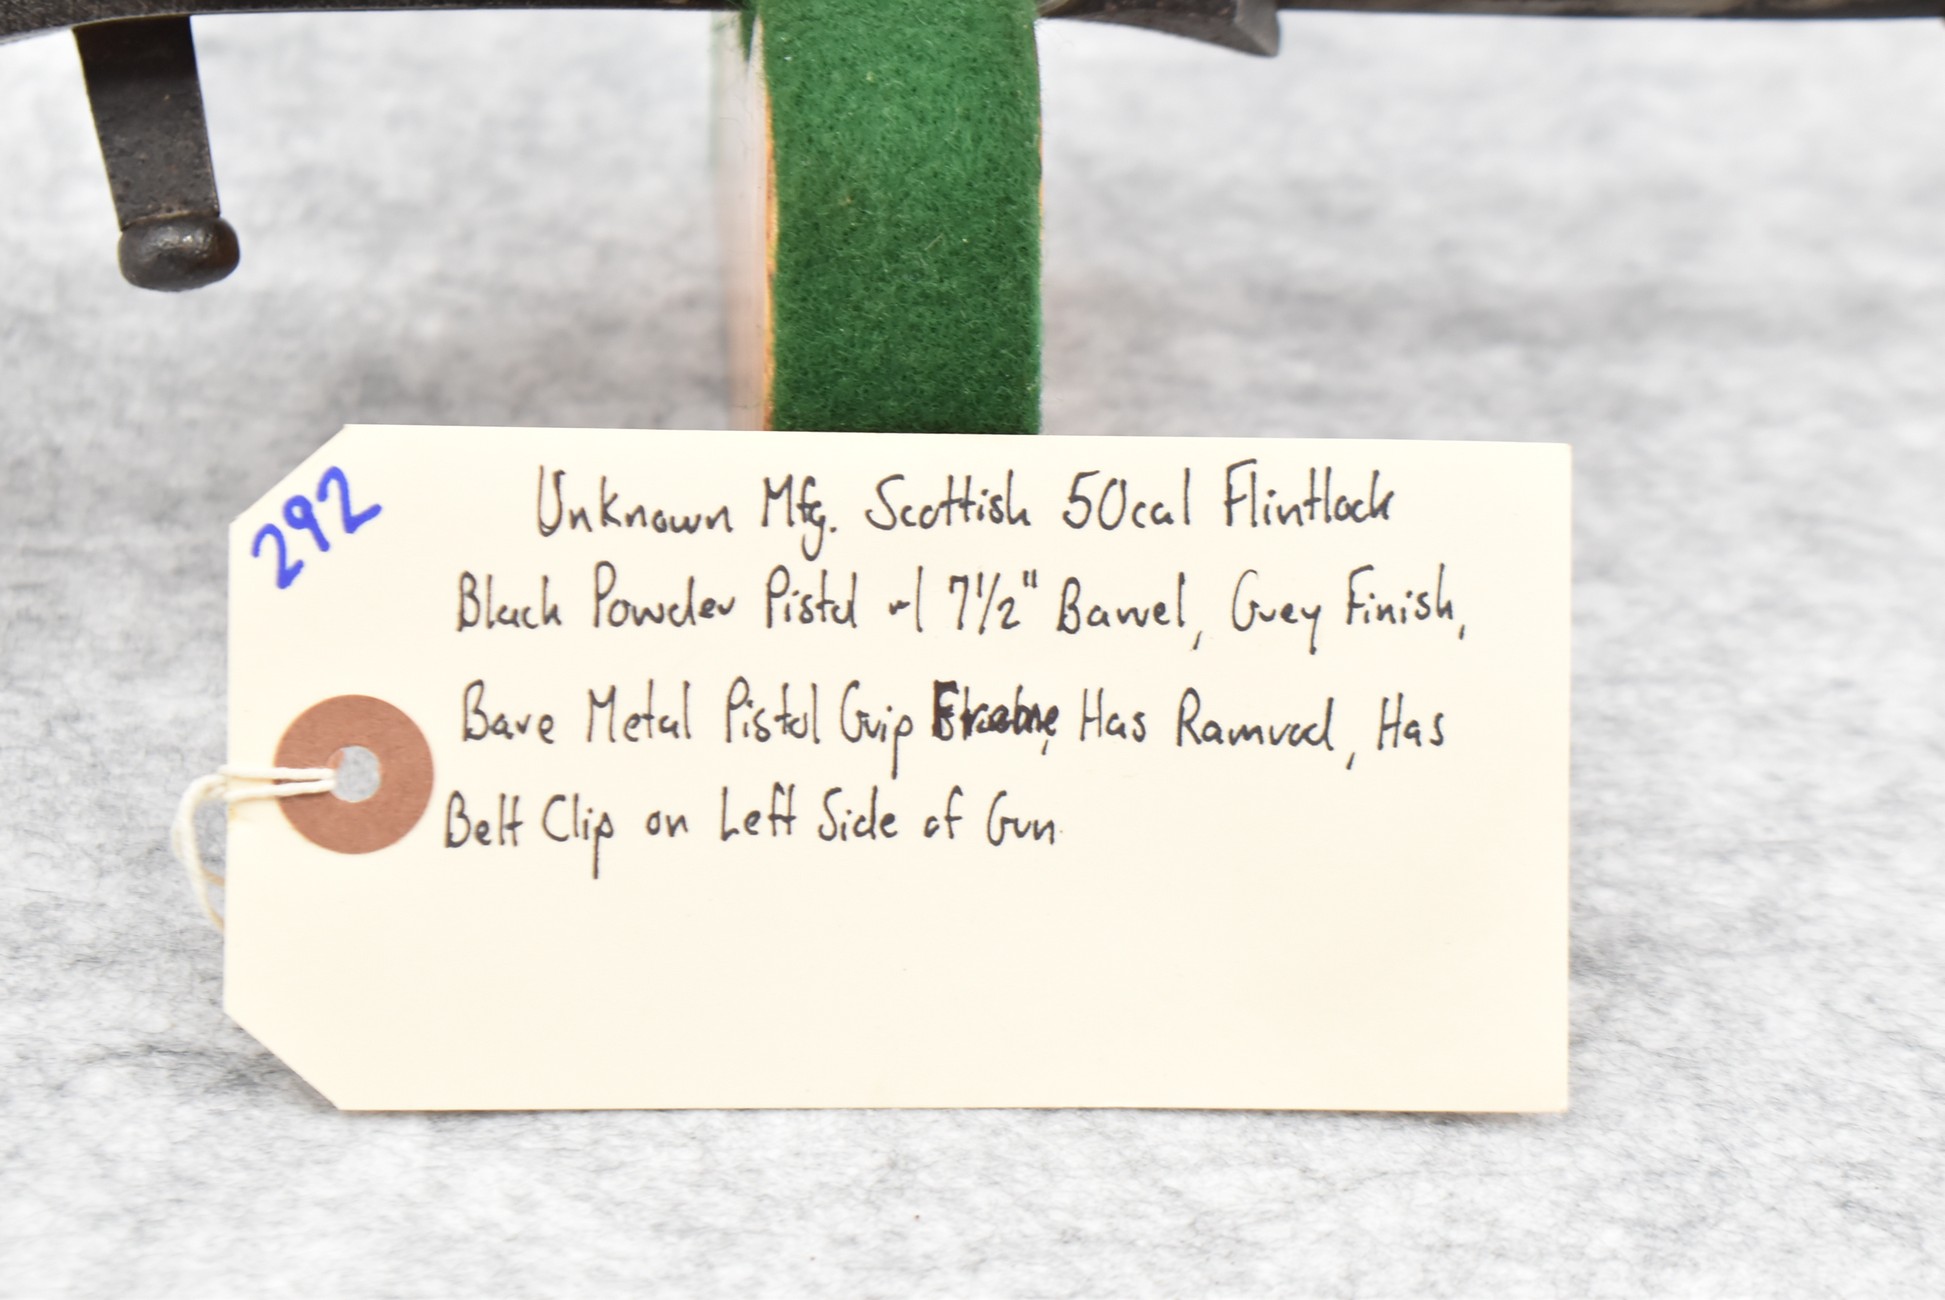 292
Unknown Mfg. Scottish 50cal Flintlock
Black Powder Pistol w/ 7 1/2" Barrel, Grey Finish,
Bare Metal Pistol Grip Frame, Has Ramrod, Has
Belt Clip on Left Side of Gun